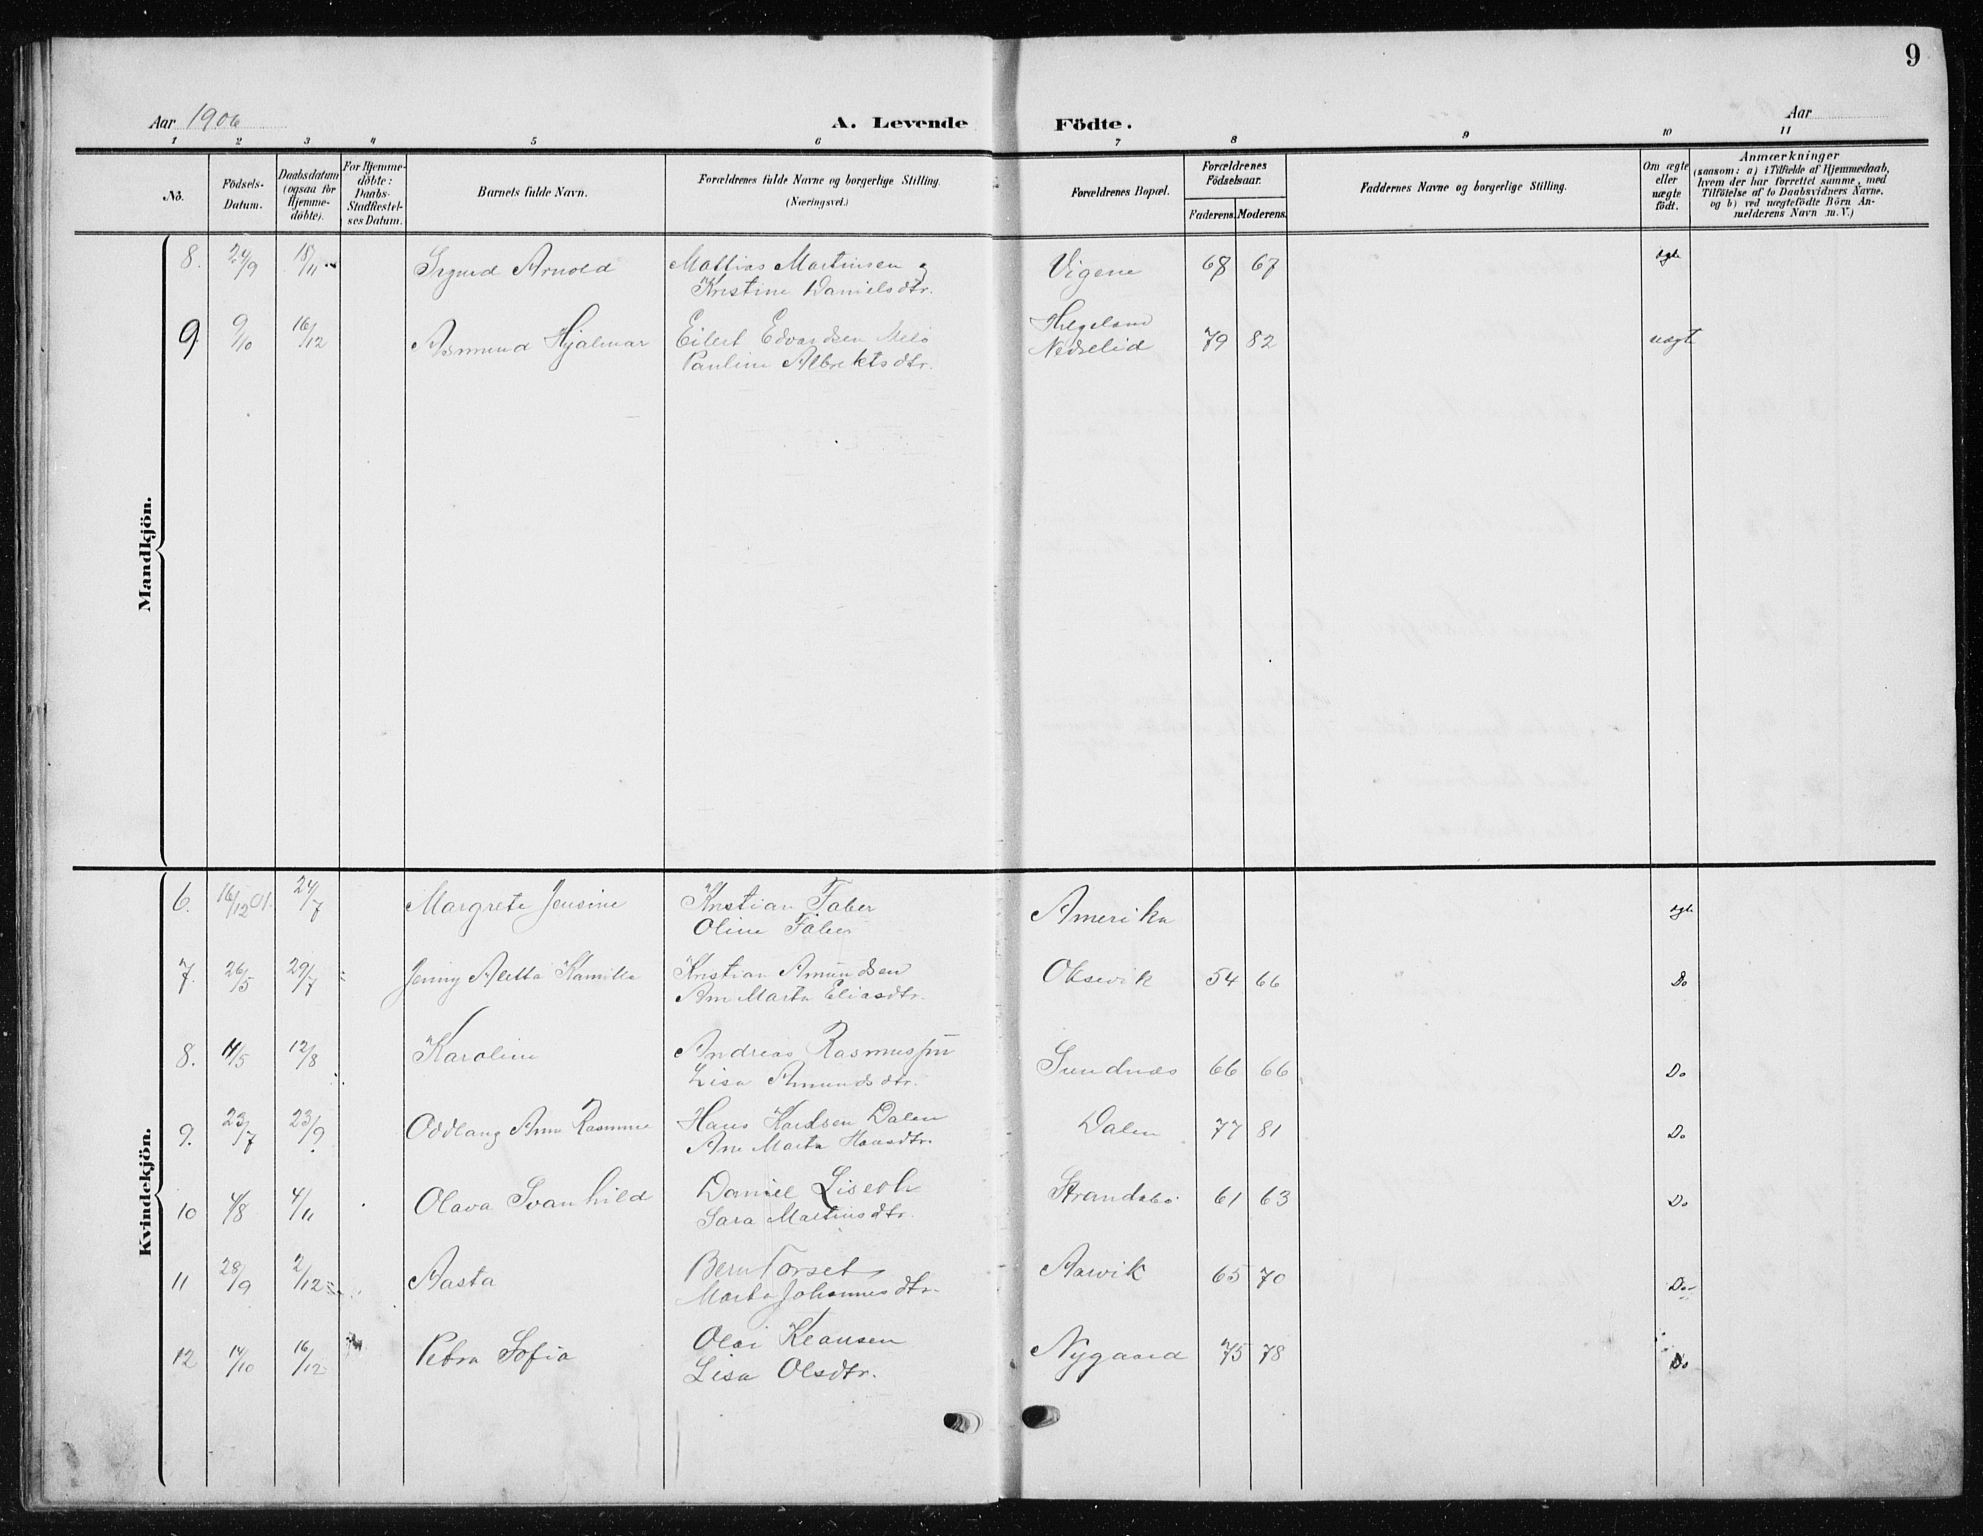 9
Aar 1906 A. Levende Födte. Aar
1 2 3 4 5 6 7 8 9 10 11
No.
Födsels-
Datum.
Daabsdatum
(ogsaa for
Hjemme-
döbte).
For Hjemme-
döbte:
Daabs-
Stadfæstel-
ses Datum.
Barnets fulde Navn.
Forældrenes fulde Navne og borgerlige Stilling.
(Næringsvei.)
Forældrenes Bopæl.
Forældrenes
Födselsaar.
Faderens. Moderens.
Faddernes Navne og borgerlige Stilling.
Om ægte
eller
uægte
födt.
Anmærkninger
(saasom: a) i Tilfælde af Hjemmedaab,
hvem der har forrettet samme, med
Tilföielse af to Daabsvidners Navne,
og b) ved uægtefödte Börn An-
melderens Navn m. V.)
Mandkjön.
8. 24/9 18/11 Sigurd Arnold Mattias Martinsen og Vigene 68 67 ægte
Kristine Danielsdtr.
9 9/10 16/12 Asmund Hjalmar Eilert Edvardsen Melö Helgeland 79 82 uægt
Pauline Albrektsdtr. Nedrelid
Kvindekjön.
6. 16/12 01. 24/7 Margrete Jensine Kristian Faber Amerika ægte
Oline Faber
7. 26/5 29/7 Jenny Aletta Kamilla Kristian Amundsen Oksvik 54 66 Do
Ane Marta Eliasdtr.
8. 11/5 12/8 Karoline Andreas Rasmussen Sundnæs 66 66 Do
Lisa Amundsdtr.
9. 23/7 23/9 Oddlaug Anna Rasmine Hans Dalen Dalen 77 81 Do
Ane Marta Hansdtr.
10 4/8 4/11 Olava Svanhild Daniel Strandabö 61 63 Do
Sara Martinsdtr.
11 28/9 2/12 Aasta Bern Torset Aarvik 65 70 Do
Marta Johannesdtr.
12 14/10 16/12 Petra Sofia Olai Klausen Nygaard 75 78 Do
Lisa Olsdtr.